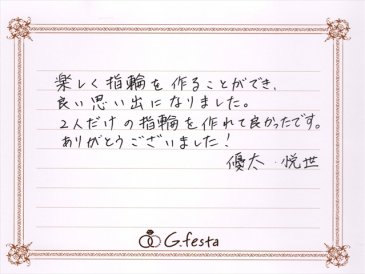 楽しく指輪を作ることができ、
良い思い出になりました。
2人だけの指輪を作れて良かったです。
ありがとうございました！
優太・悦世
G.festa